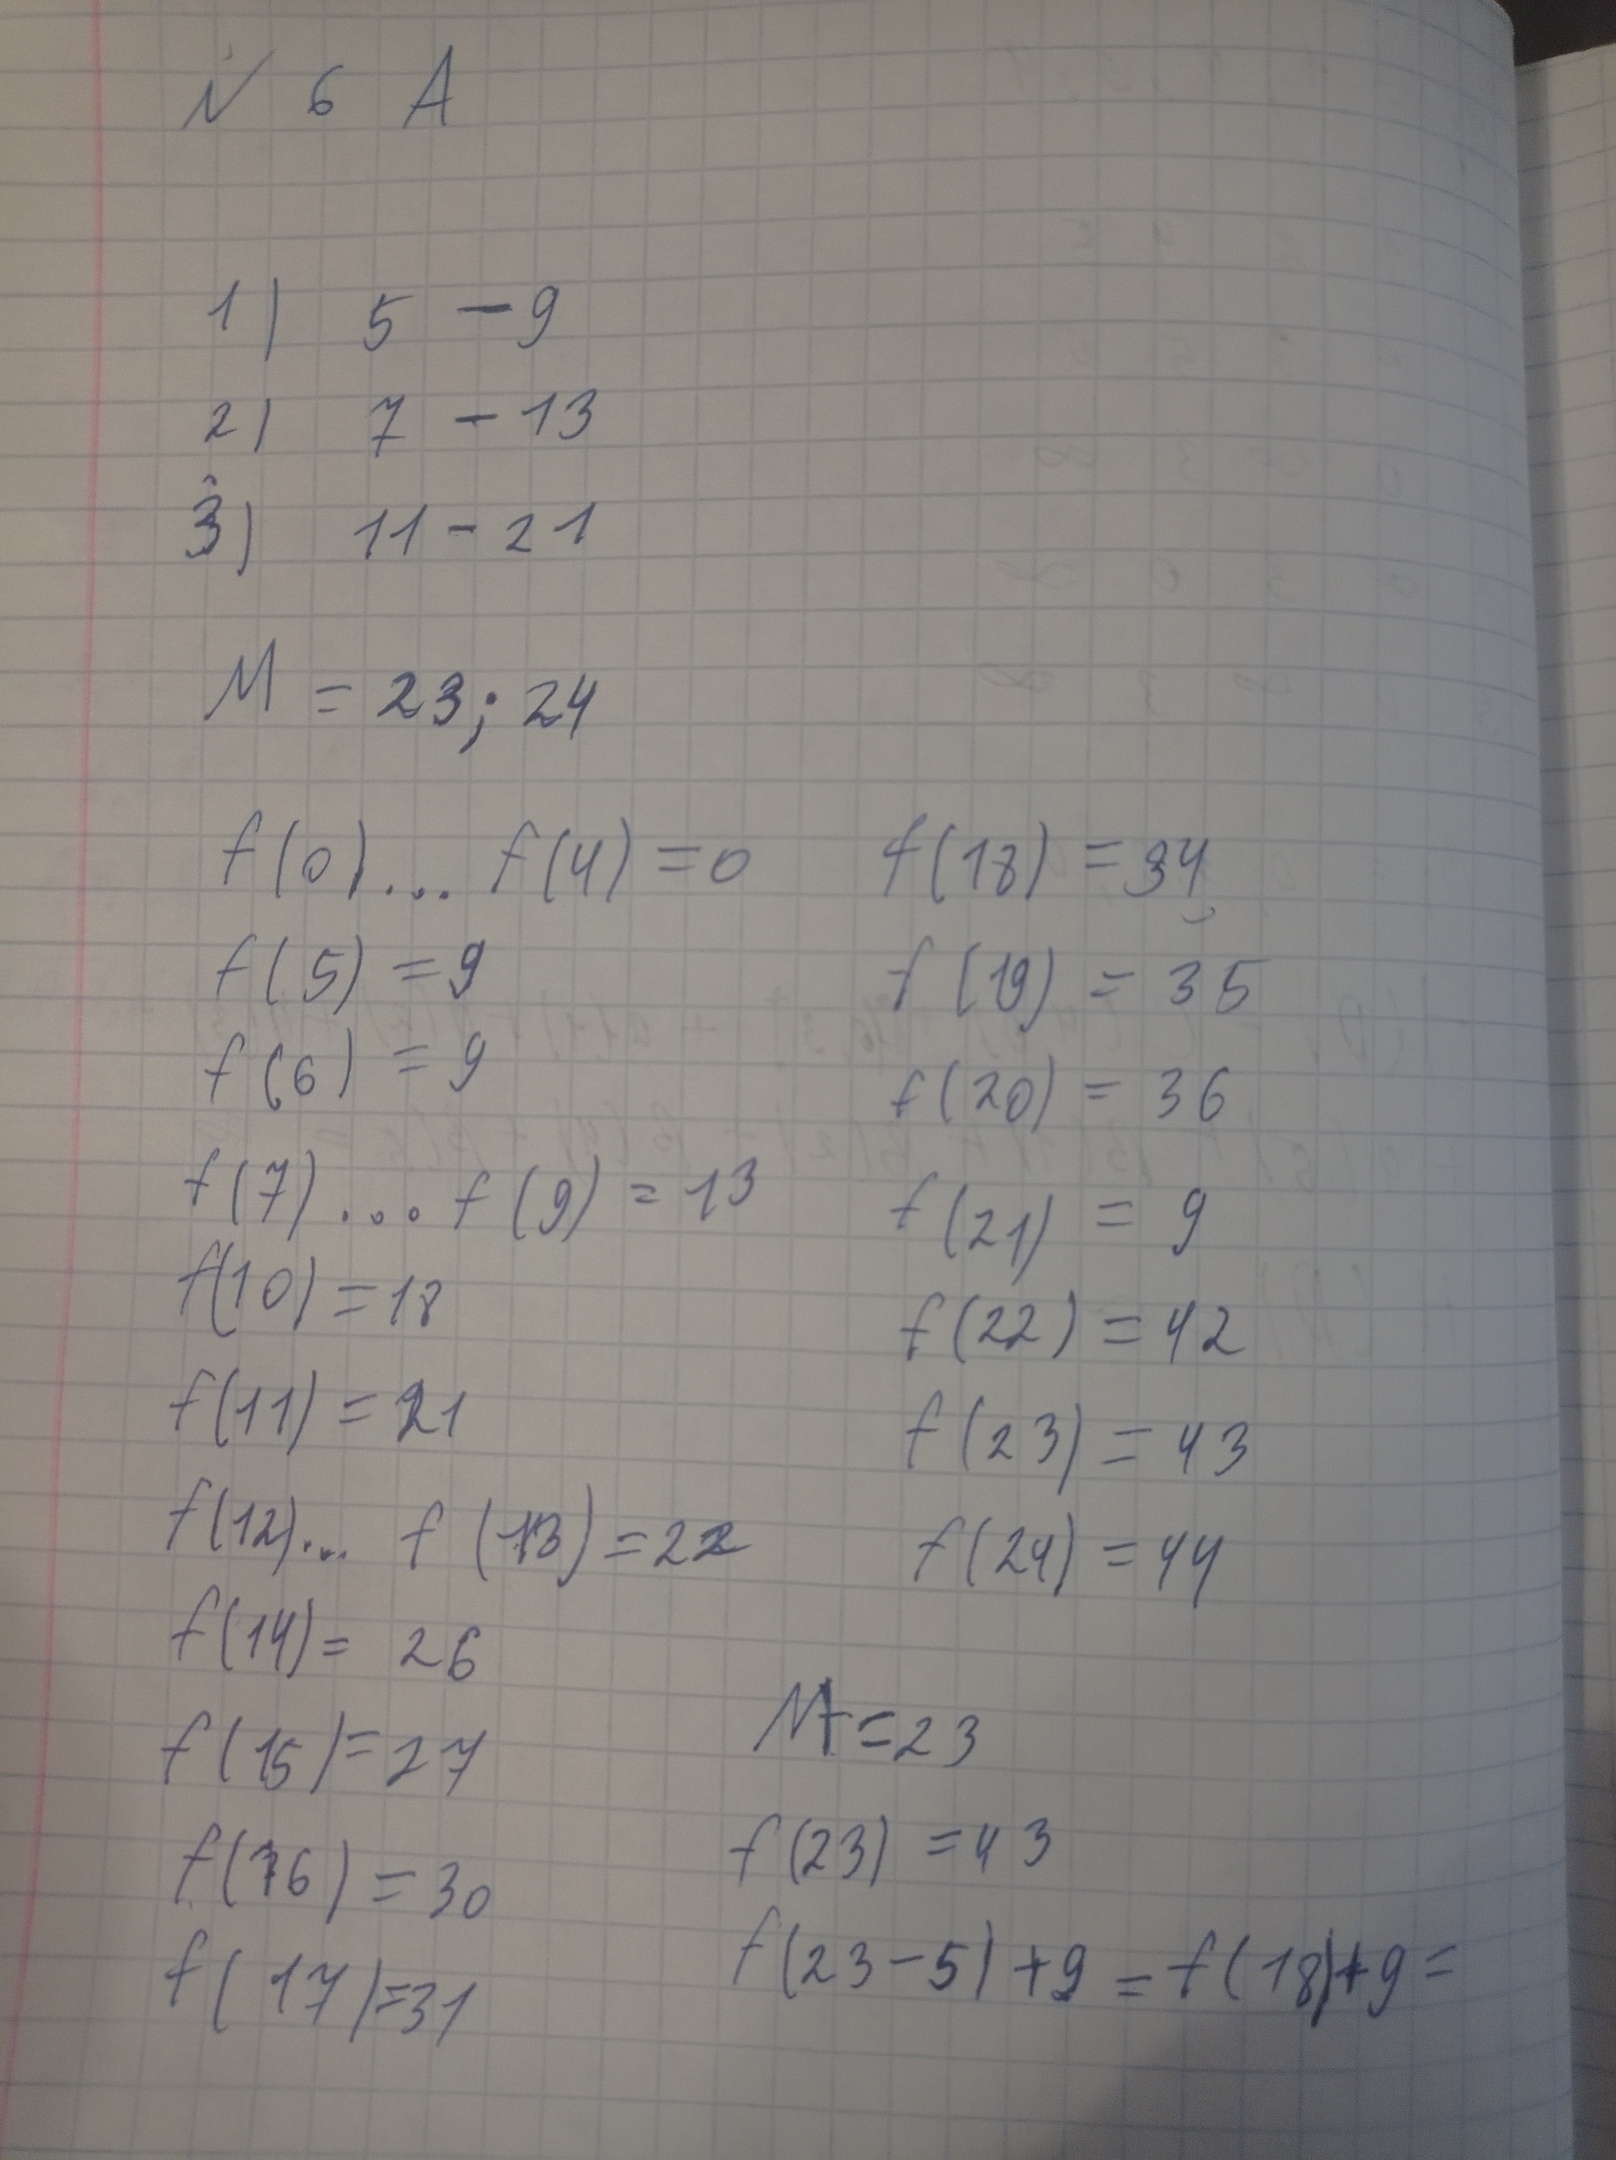 № 6 A
1) 5 - 9
2) 7 - 13
3) 11 - 21
M = 23; 24
f(0)... f(4) = 0
f(5) = 9
f(6) = 9
f(7)... f(9) = 13
f(10) = 18
f(11) = 21
f(12)... f(13) = 22
f(14) = 26
f(15) = 27
f(16) = 30
f(17) = 31
f(18) = 34
f(19) = 35
f(20) = 36
f(21) = 9
f(22) = 42
f(23) = 43
f(24) = 44
M = 23
f(23) = 43
f(23-5)+9 = f(18)+9 =